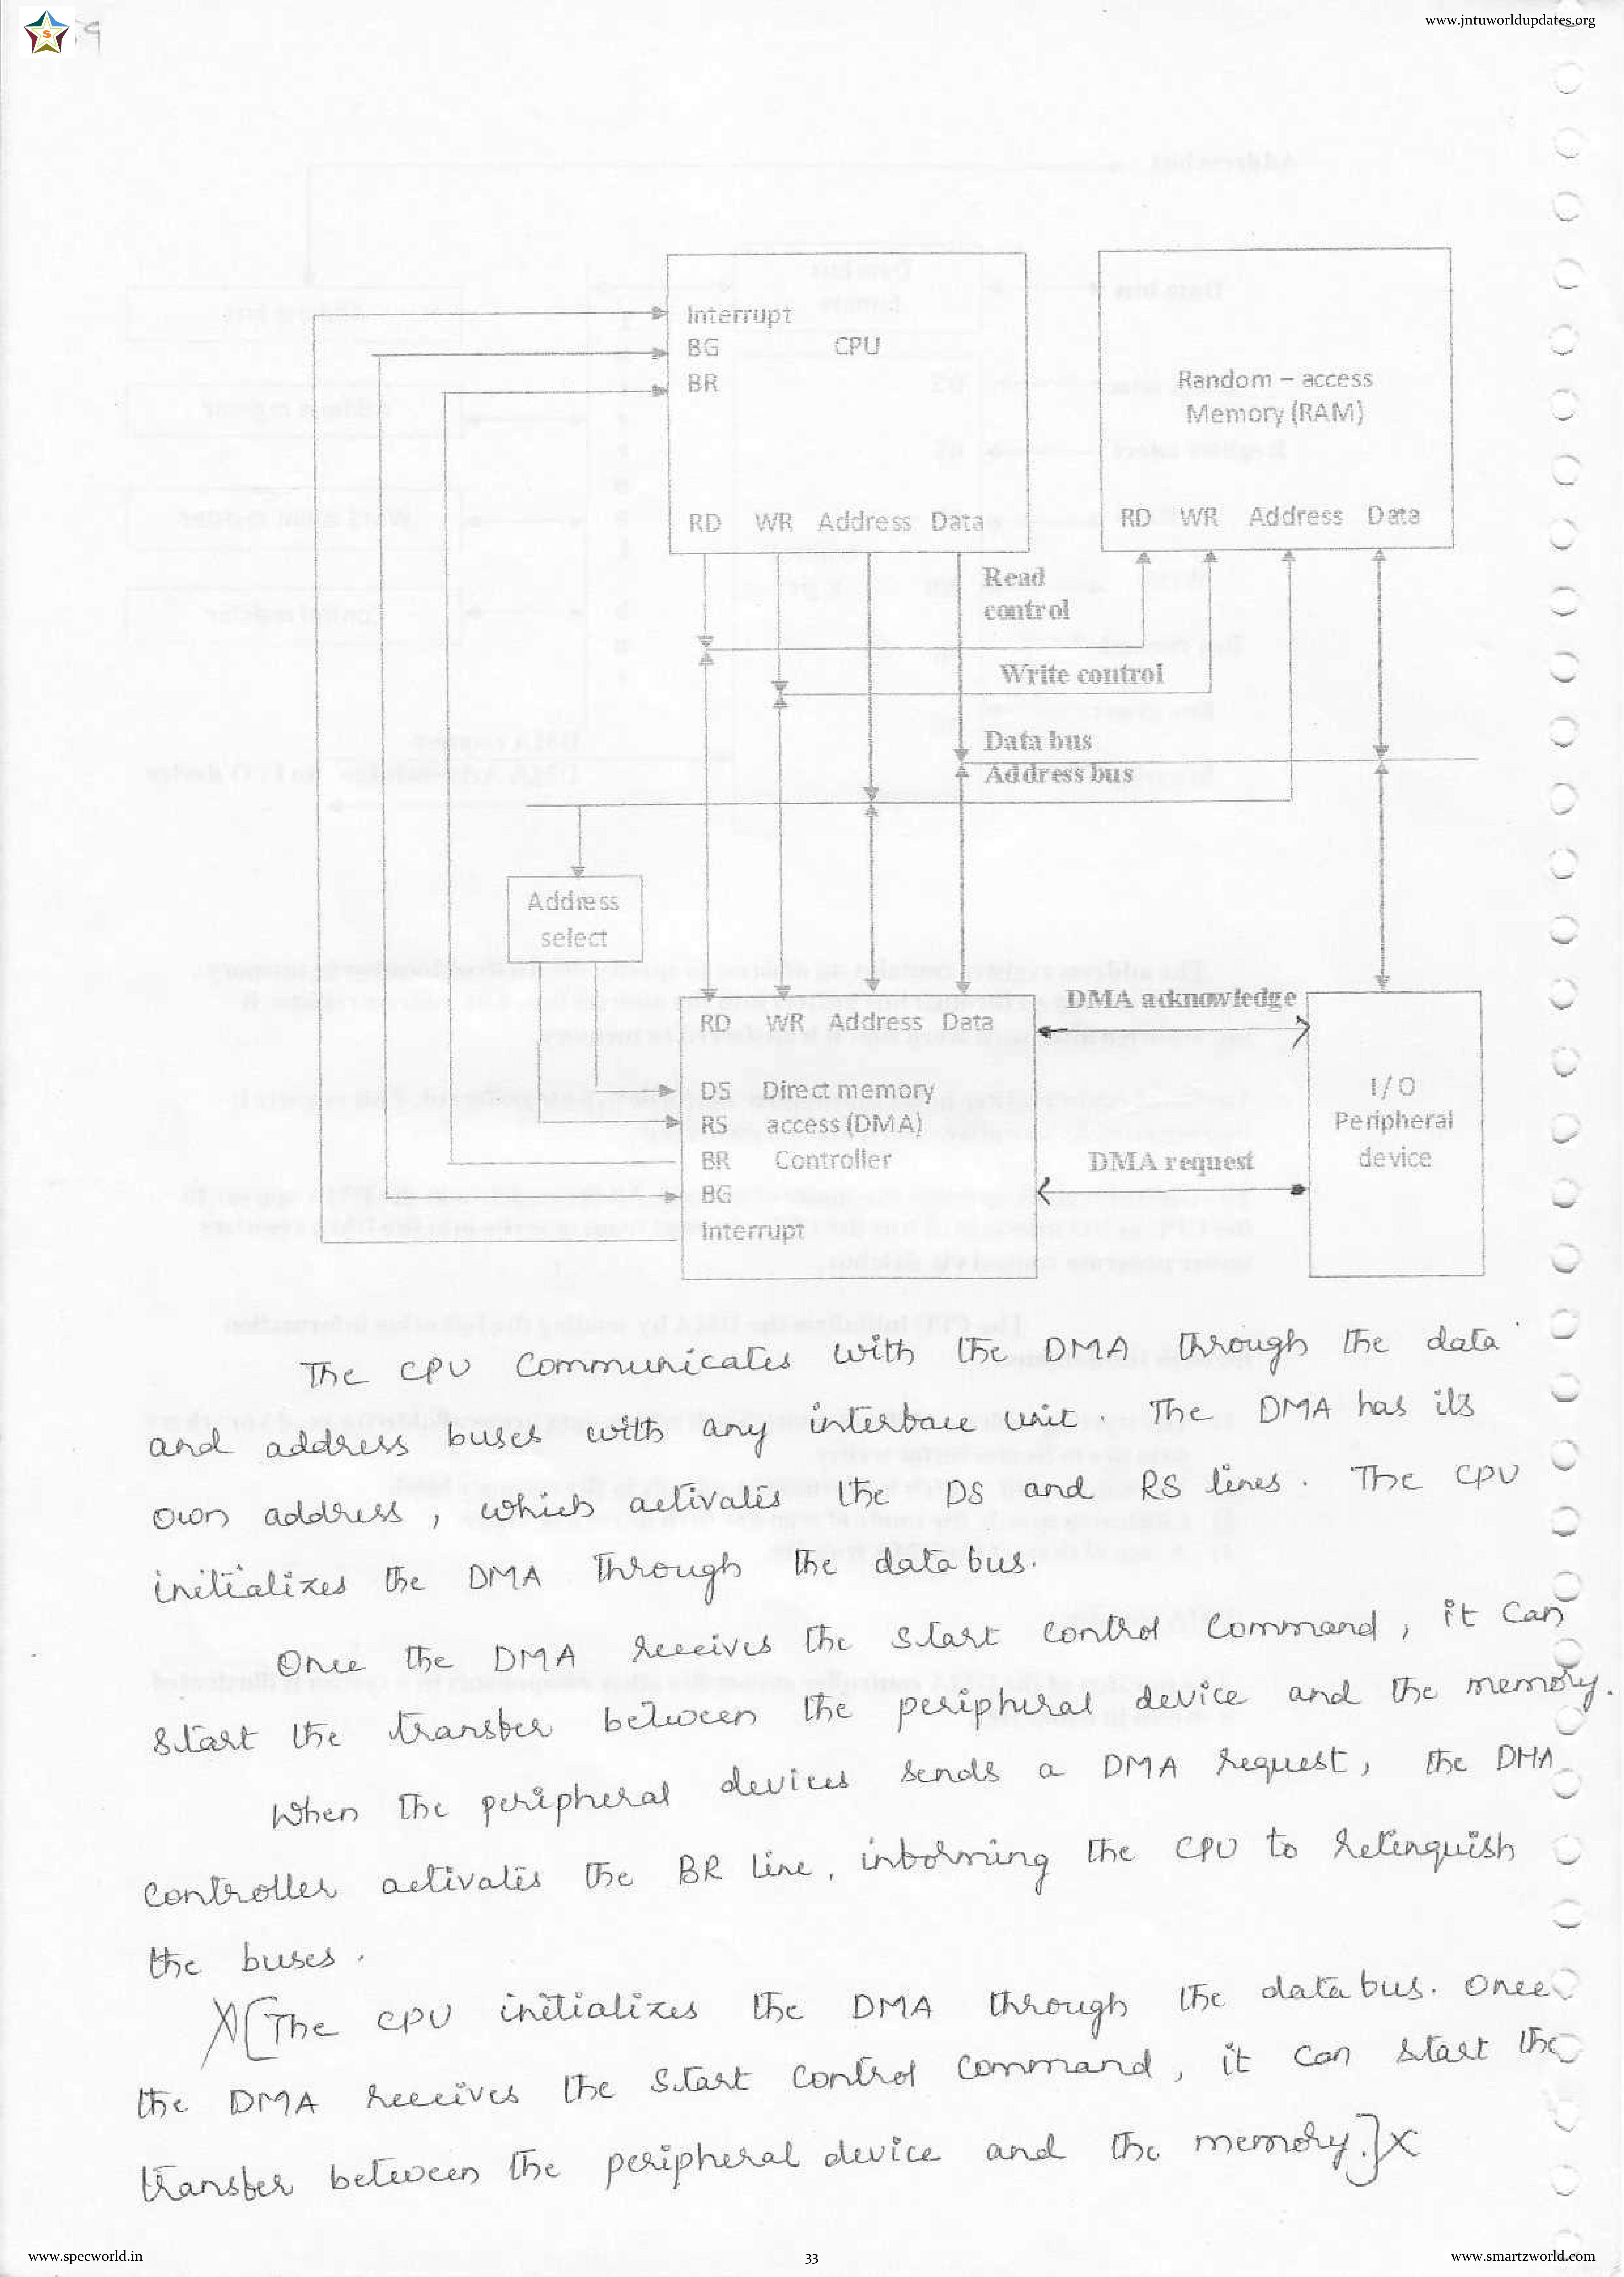 www.jntuworldupdates.org
S
Interrupt
BG CPU
BR
RD WR Address Data
Random – access
Memory (RAM)
RD WR Address Data
Read
control
Write control
Data bus
Address bus
Address
select
RD WR Address Data
DS Direct memory
RS access (DMA)
BR Controller
BG
Interrupt
DMA acknowledge
DMA request
I/O
Peripheral
device
The CPU communicates with the DMA through the data
and address buses with any interface unit. The DMA has its
own address, which activates the DS and RS lines. The CPU
initializes the DMA through the data bus.
Once the DMA receives the start control command, it can
start the transfer between the peripheral device and the memory.
When the peripheral devices sends a DMA request, the DMA
controller activates the BR line, informing the CPU to relinquish
the buses.
X[The CPU initializes the DMA through the data bus. Once
the DMA receives the start control command, it can start the
transfer between the peripheral device and the memory.]X
www.specworld.in
33
www.smartzworld.com